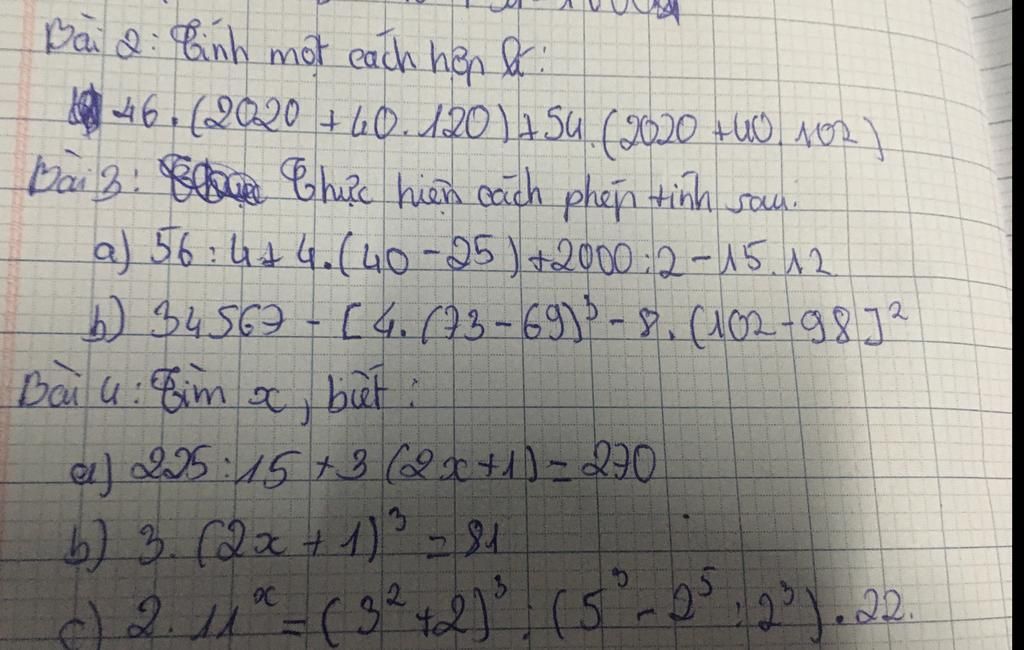 Bài 2: Tính một cách hợp lí:
46.(2020 + 40.120) + 54.(2020 + 40.102)
Bài 3: Thực hiện cách phép tính sau:
a) 56 : 4 + 4.(40 - 25) + 2000 : 2 - 15.12
b) 34567 - [4.(73 - 69)³ - 8.(102 - 98]²
Bài 4: Tìm x, biết:
a) 225 : 15 + 3 (2x + 1) = 270
b) 3.(2x + 1)³ = 81
c) 2.11ˣ = (3² + 2)³ : (5³ - 2⁵ : 2³).22.